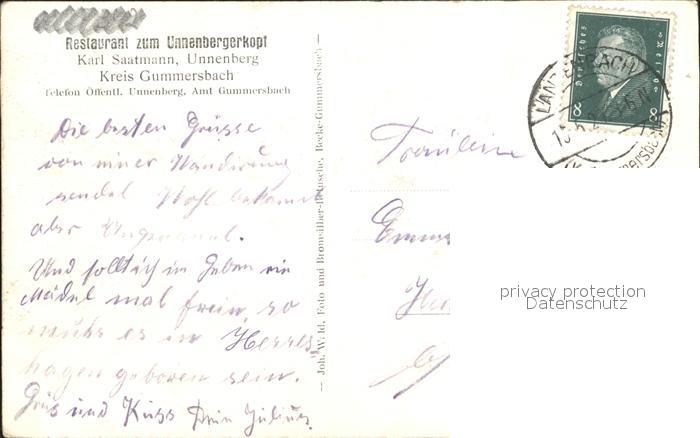 Restaurant zum Unnenbergerkopf
Karl Saatmann, Unnenberg
Kreis Gummersbach
Telefon Öffentl. Unnenberg, Amt Gummersbach
Die besten Grüsse
von einer Wanderung
sendet Wohl bekannt
aber Ungenannt.
Und sollt ich im Leben ein
Mädel mal frein, so
muss es in Herres-
hagen geboren sein.
Grus und Kuss Dein
Joh. W. ld. Foto und Bromsilber- Becke-Gummersbach
Deutsches Reich
8 8
Fräulein
privacy protection
Datenschutz